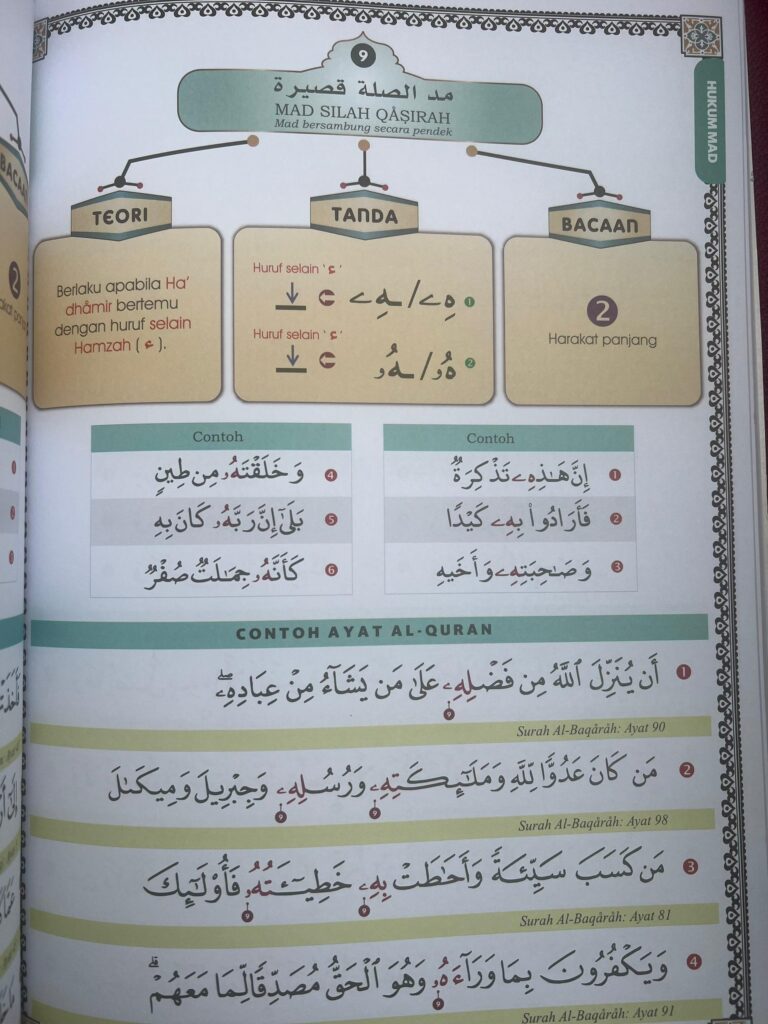 9
مد الصلة قصيرة
MAD SILAH QÂṢIRAH
Mad bersambung secara pendek
HUKUM MAD
TEORI
Berlaku apabila Ha’
dhâmir bertemu
dengan huruf selain
Hamzah ( ء ).
TANDA
Huruf selain ‘ ء ’
1 هِۦ/ـهِۦ
Huruf selain ‘ ء ’
2 هُۥ/ـهُۥ
BACAAN
2
Harakat panjang
Contoh
1 إِنَّ هَـٰذِهِۦ تَذْكِرَةٌ
2 فَأَرَادُوا۟ بِهِۦ كَيْدًا
3 وَصَـٰحِبَتِهِۦ وَأَخِيهِ
Contoh
4 وَخَلَقْتَهُۥ مِن طِينٍ
5 بَلَىٰٓ إِنَّ رَبَّهُۥ كَانَ بِهِ
6 كَأَنَّهُۥ جِمَـٰلَتٌ صُفْرٌ
CONTOH AYAT AL-QURAN
1 أَن يُنَزِّلَ ٱللَّهُ مِن فَضْلِهِۦ عَلَىٰ مَن يَشَآءُ مِنْ عِبَادِهِۦ ۖ
9
Surah Al-Baqârâh: Ayat 90
2 مَن كَانَ عَدُوًّا لِّلَّهِ وَمَلَـٰٓئِكَتِهِۦ وَرُسُلِهِۦ وَجِبْرِيلَ وَمِيكَىٰلَ
9 9
Surah Al-Baqârâh: Ayat 98
3 مَن كَسَبَ سَيِّئَةً وَأَحَـٰطَتْ بِهِۦ خَطِيٓـَٔتُهُۥ فَأُو۟لَـٰٓئِكَ
9 9
Surah Al-Baqârâh: Ayat 81
4 وَيَكْفُرُونَ بِمَا وَرَآءَهُۥ وَهُوَ ٱلْحَقُّ مُصَدِّقًا لِّمَا مَعَهُمْ ۗ
9
Surah Al-Baqârâh: Ayat 91